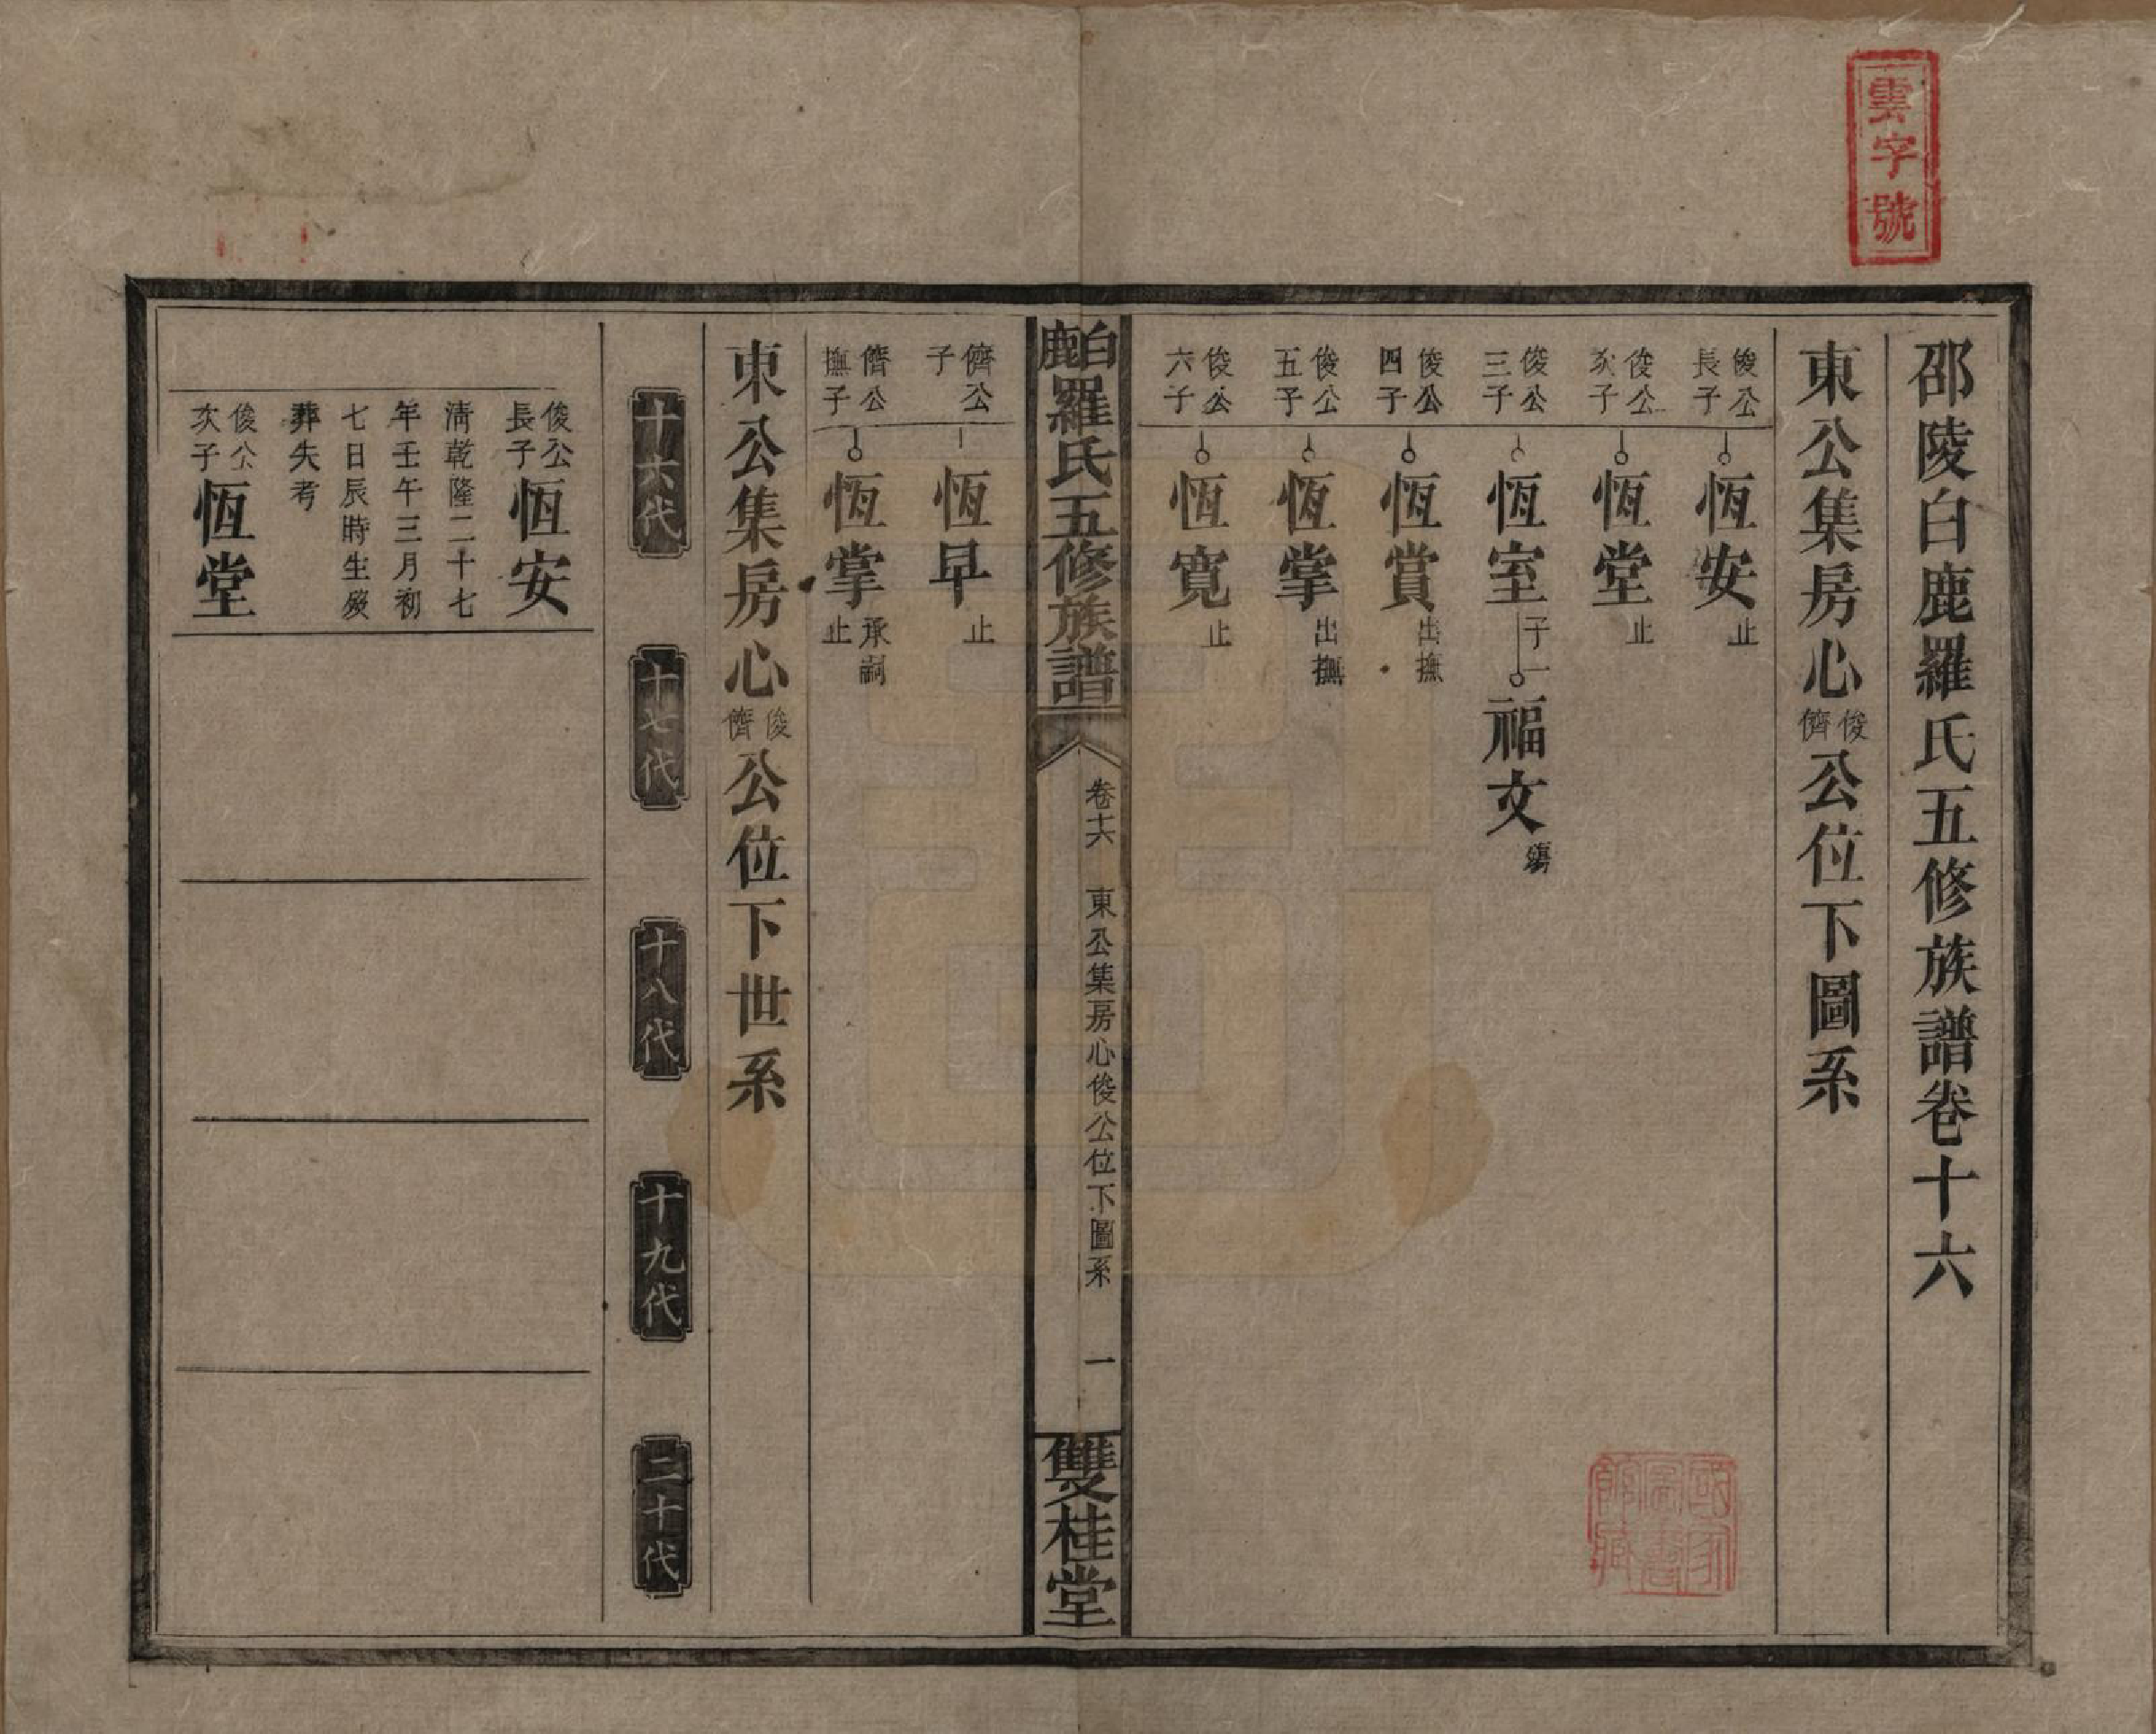 雲字號
邵陵白鹿羅氏五修族譜卷十六
東公集房心俊儕公位下圖系
俊公長子 恆安 止
俊公次子 恆堂 止
俊公三子 恆室 子一 福文
俊公四子 恆賞 出撫
俊公五子 恆掌 出撫
俊公六子 恆寬 止
白鹿羅氏五修族譜 卷十六 東公集房心俊公位下圖系 一 雙桂堂
儕公子 恆早 止
儕公撫子 恆掌 承嗣止
東公集房心俊儕公位下世系
十六代 十七代 十八代 十九代 二十代
俊公長子 恆安
清乾隆二十七
年壬午三月初
七日辰時生歿
葬失考
俊公次子 恆堂
國家圖書館藏